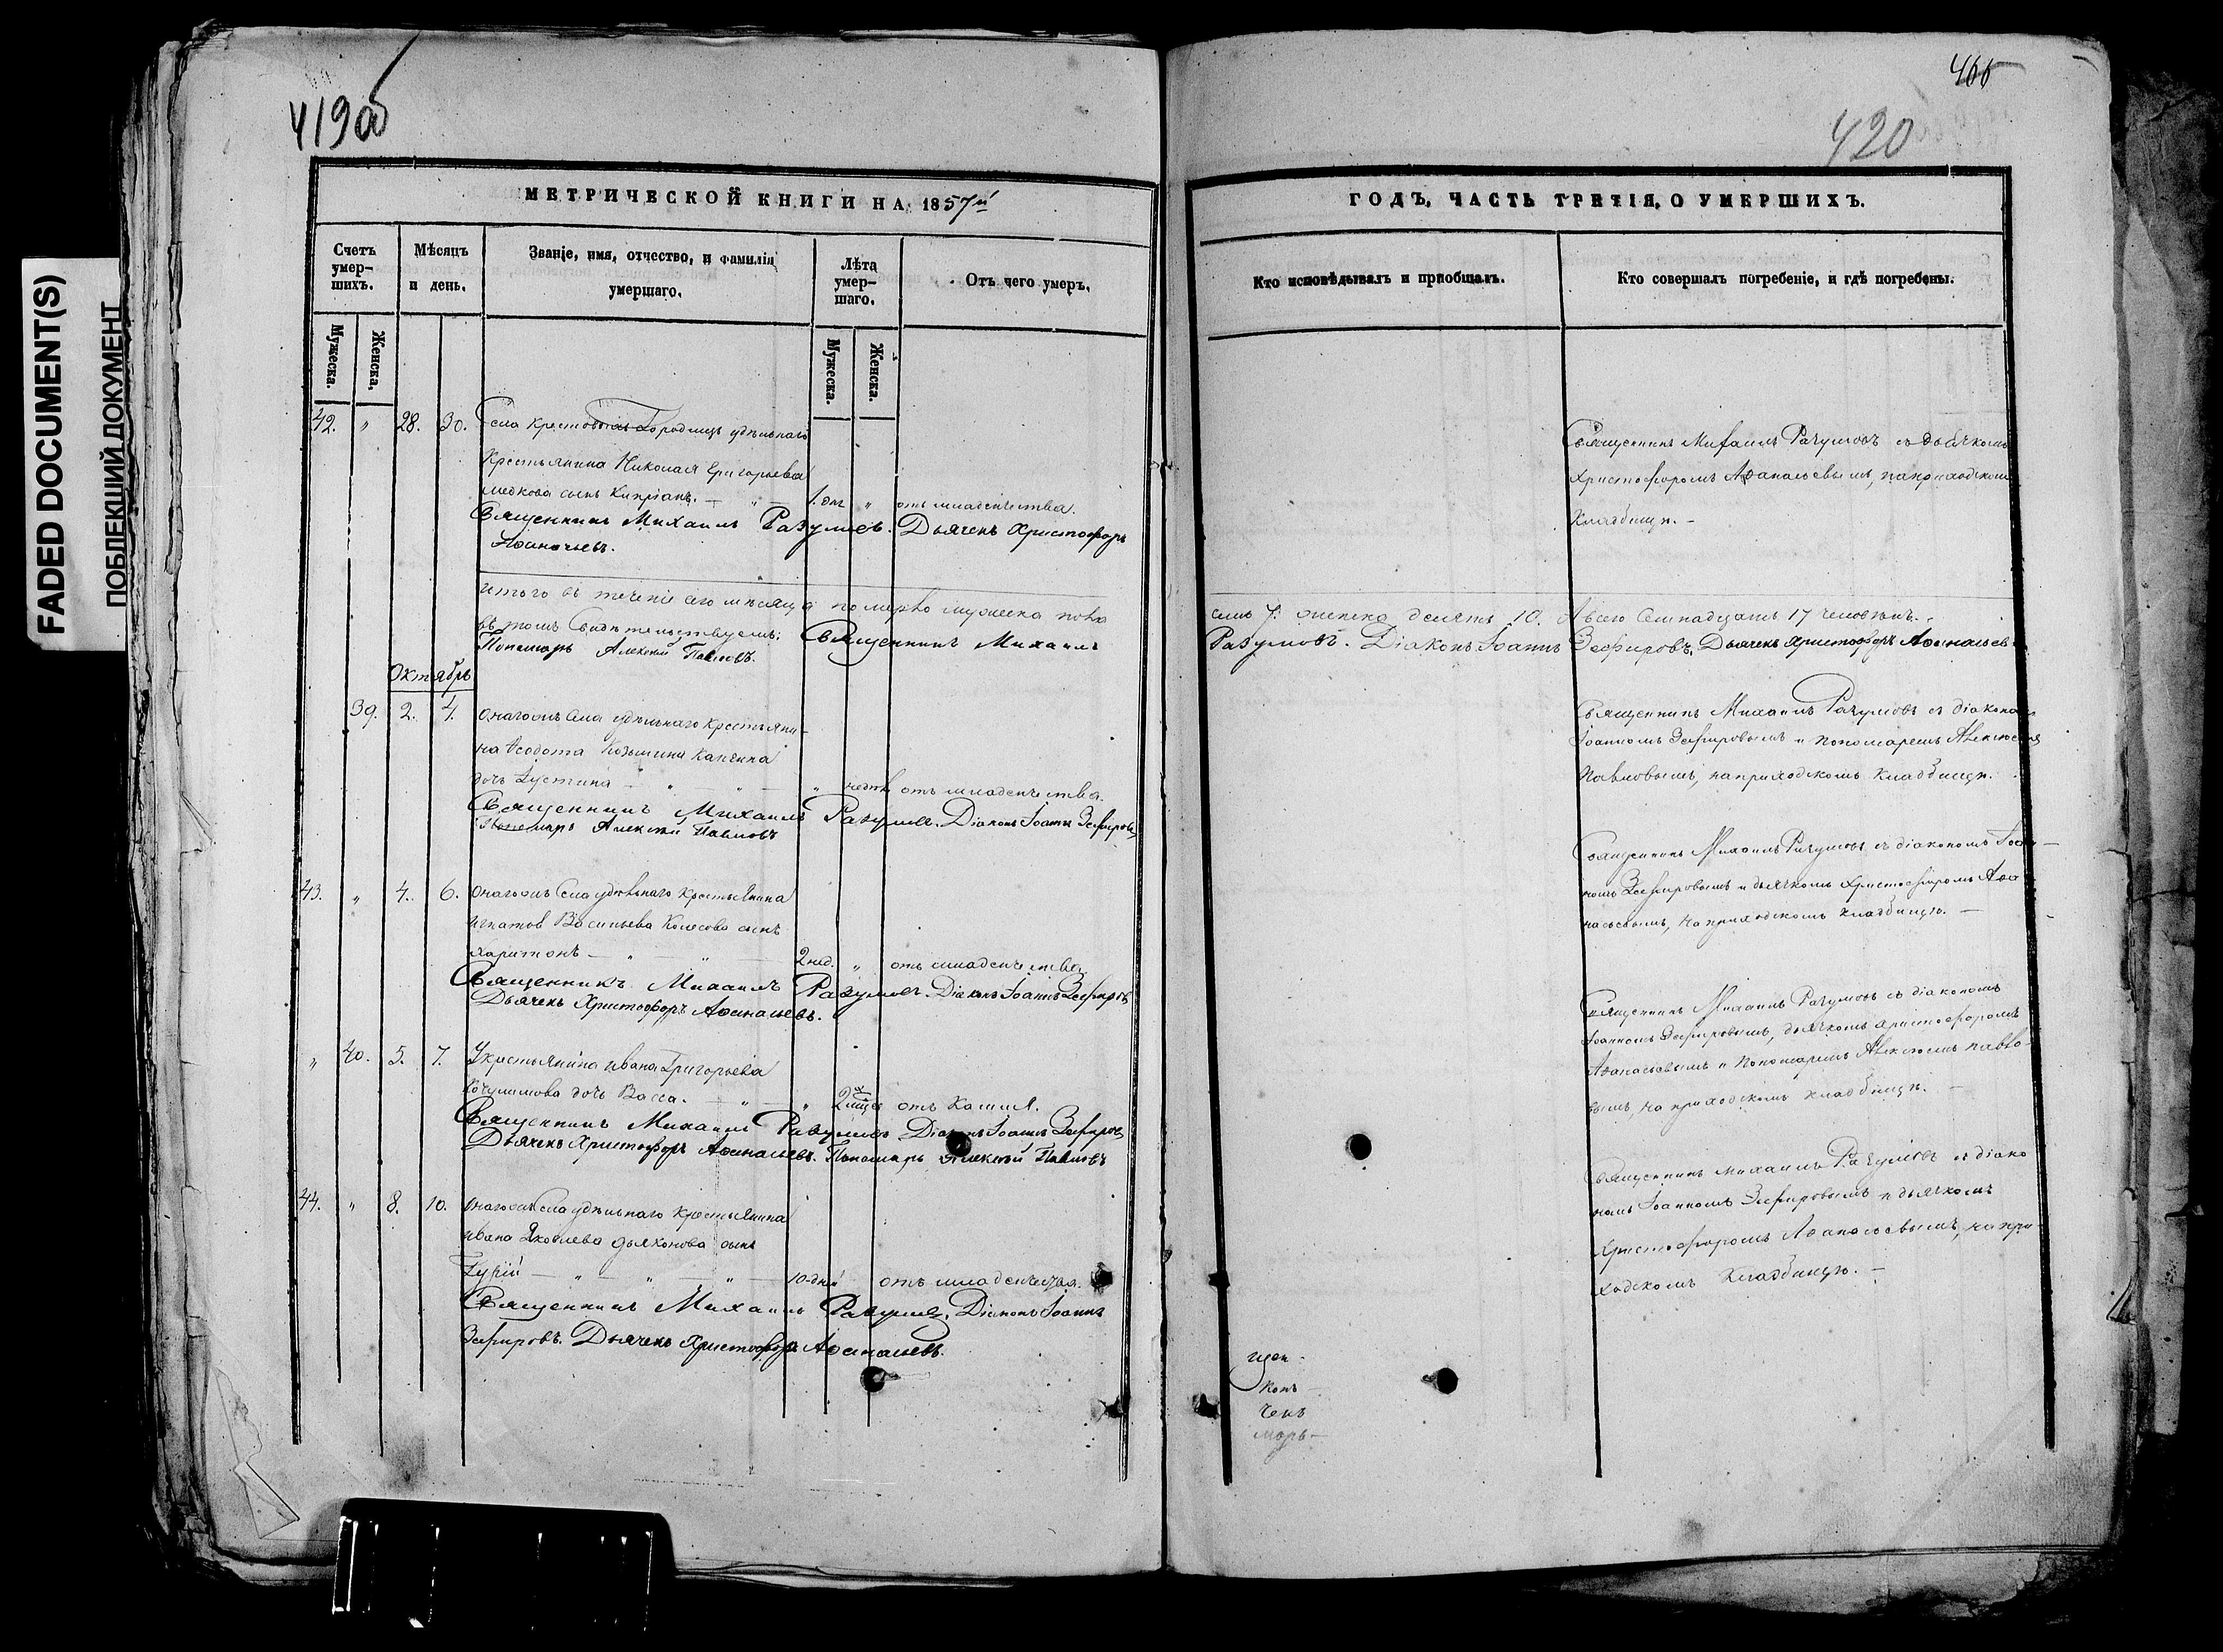 FADED DOCUMENT(S)
ПОБЛЕКШИЙ ДОКУМЕНТ
419об
МЕТРИЧЕСКОЙ КНИГИ НА 1857й
Счетъ умер-шихъ.
Мѣсяцъ и день.
Званіе, имя, отчество, и фамилія умершаго.
Лѣта умер-шаго.
Отъ чего умеръ.
Мужеска.
Женска.
Мужеска.
Женска.
42. " 28. 30. Села Крестовыхъ Городищь удѣльнаго
Крестьянина Николая Григорьева
сынъ Кипріанъ. — " — 1. дн. " отъ младенчества.
Священникъ Михаилъ Разумовъ. Дьячекъ Христофоръ
Аѳанасьевъ.
Итого въ теченіе сего мѣсяца померло мужеска пола
въ томъ Свидѣтельствуемъ: Священникъ Михаилъ
Пономарь Алексѣй Павловъ.
Октябрь
39. 2. 4. Онагожъ Села удѣльнаго крестьяни-
на Ѳеодота Козьмина
дочь Іустина — " — " — " недѣл. отъ младенчества.
Священникъ Михаилъ Разумовъ. Діаконъ Іоаннъ Зефировъ
Пономарь Алексѣй Павловъ
43. " 4. 6. Онагожъ Села удѣльнаго крестьянина
Игнатія Васильева Колесова сынъ
Харитонъ — " — " — 2 нед. " отъ младенчества.
Священникъ Михаилъ Разумовъ. Діаконъ Іоаннъ Зефировъ
Дьячекъ Христофоръ Аѳанасьевъ.
" 40. 5. 7. У крестьянина Ивана Григорьева
дочь Васса. — " — " 2 отъ Кашля.
Священникъ Михаилъ Разумовъ Діаконъ Іоаннъ Зефировъ
Дьячекъ Христофоръ Аѳанасьевъ. Пономарь Алексѣй Павловъ
44. " 8. 10. Онагожъ Села удѣльнаго крестьянина
Ивана Яковлева Дьяконова сынъ
Гурій — " — " — " — 10-дн. " отъ младенчества.
Священникъ Михаилъ Разумовъ. Діаконъ Іоаннъ
Зефировъ. Дьячекъ Христофоръ Аѳанасьевъ.
466
420
ГОДЪ, ЧАСТЬ ТРЕТІЯ, О УМЕРШИХЪ.
Кто исповѣдывалъ и пріобщалъ.
Кто совершалъ погребеніе, и гдѣ погребены.
Священникъ Михаилъ Разумовъ съ дьячкомъ
Христофоромъ Аѳанасьевымъ, на приходскомъ
Кладбищѣ. —
семь 7. женска десять 10. А всего Семнадцать 17 человѣкъ. —
Разумовъ. Діаконъ Іоаннъ Зефировъ. Дьячекъ Христофоръ Аѳанасьевъ
Священникъ Михаилъ Разумовъ съ діакономъ
Іоанномъ Зефировымъ и пономаремъ Алексѣемъ
Павловымъ, на приходскомъ кладбищѣ.
Священникъ Михаилъ Разумовъ съ діакономъ Іоан-
номъ Зефировымъ и дьячкомъ Христофоромъ Аѳа
насьевымъ, на приходскомъ кладбищѣ. —
Священникъ Михаилъ Разумовъ съ діакономъ
Іоанномъ Зефировымъ, дьячкомъ Христофоромъ
Аѳанасьевымъ и пономаремъ Алексѣемъ Павло-
вымъ, на приходскомъ кладбищѣ. —
Священникъ Михаилъ Разумовъ съ діако
номъ Іоанномъ Зефировымъ и дьячкомъ
Христофоромъ Аѳанасьевымъ, на при-
ходскомъ Кладбищѣ. —
щен-
конъ
чекъ
марь —